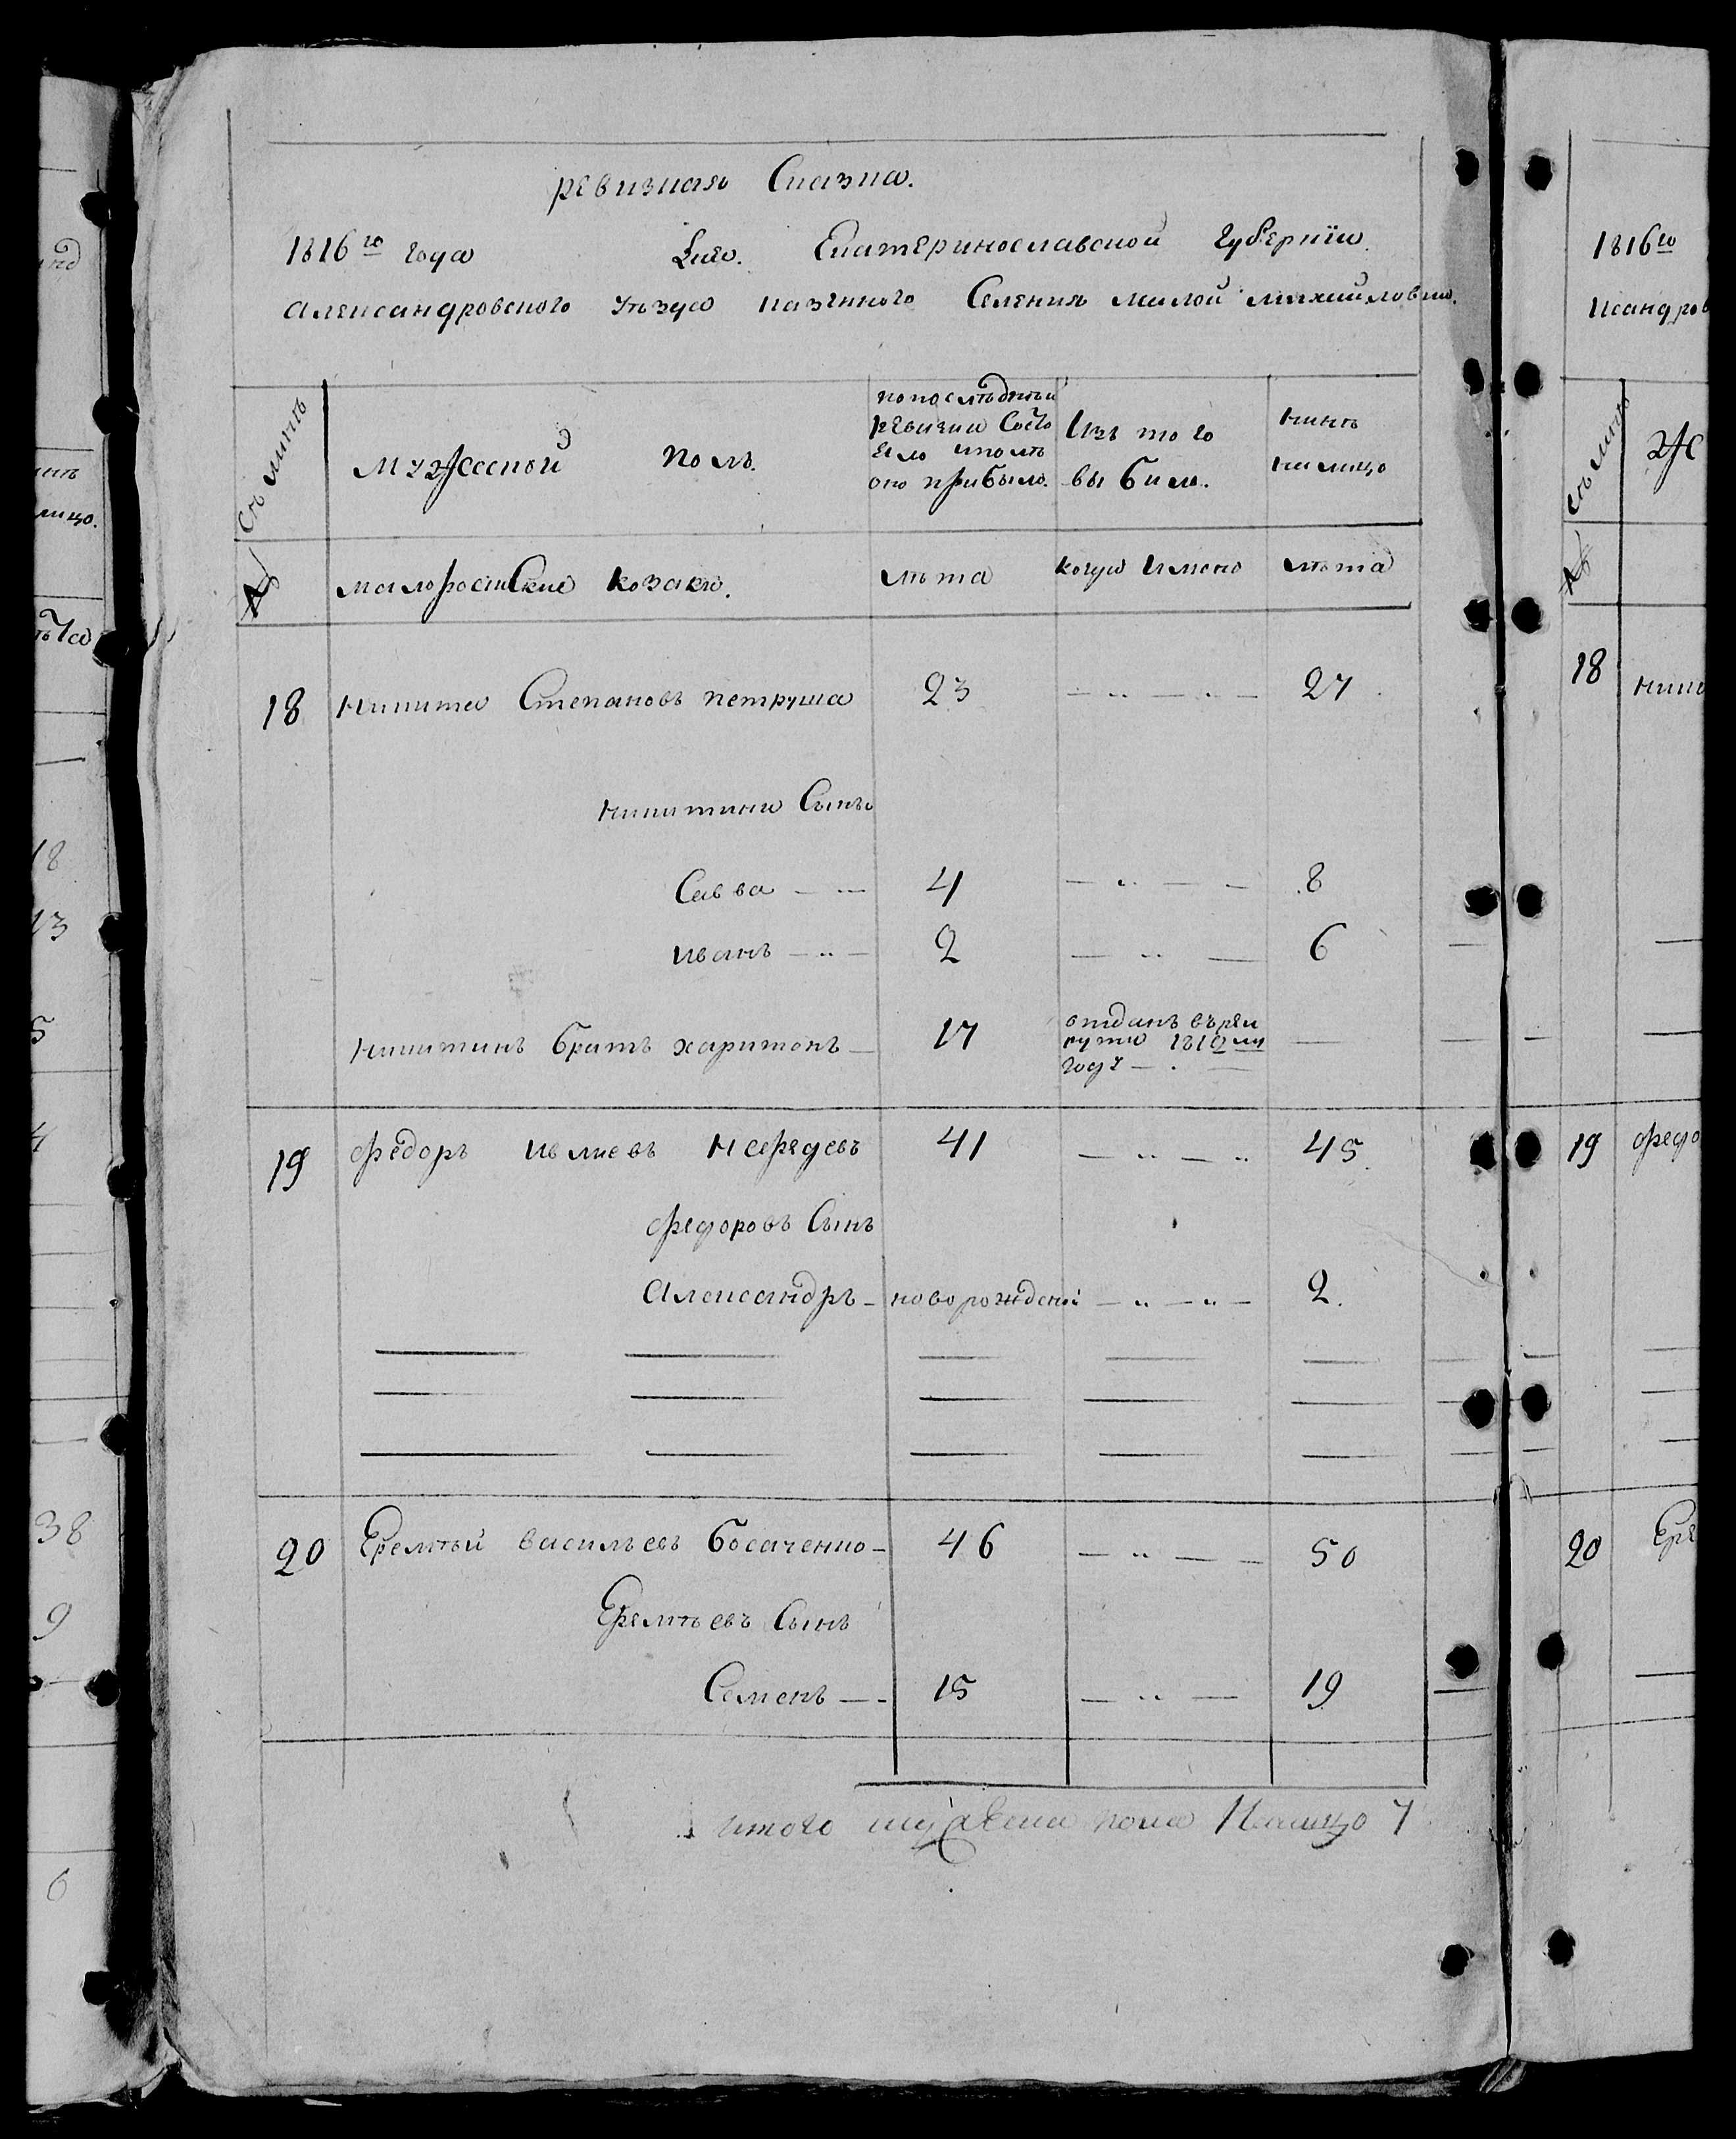 ревизкая Сказка.
1816го года Дня. Екатеринославской губернїи
александровского уѣзда казенного Селения малой михайловки.
Семьи
мужеской полъ.
попослѣднѣй ревизии Состояло иполѣ оно прибыло.
Изъ того выбыли.
нинѣ налицо
№
малоросийские козаки.
лѣта
когда Имено
лѣта
18 никита Степановъ петруша 23 27
никитини Сыны
Савва 4 8
иванъ 2 6
никитинъ братъ харитонъ 17 отданъ въреи
руты 1812му
году
19 федоръ ивлиевъ нередевъ 41 45
федоровъ Сынъ
Александръ новорожденой 2.
20 Еремѣй васильевъ босаченко 46 50
Еремѣевъ Сынъ
Семенъ 15 19
итого мужеска пола Налицо 7
1816го
18
19 федо
20 Ере